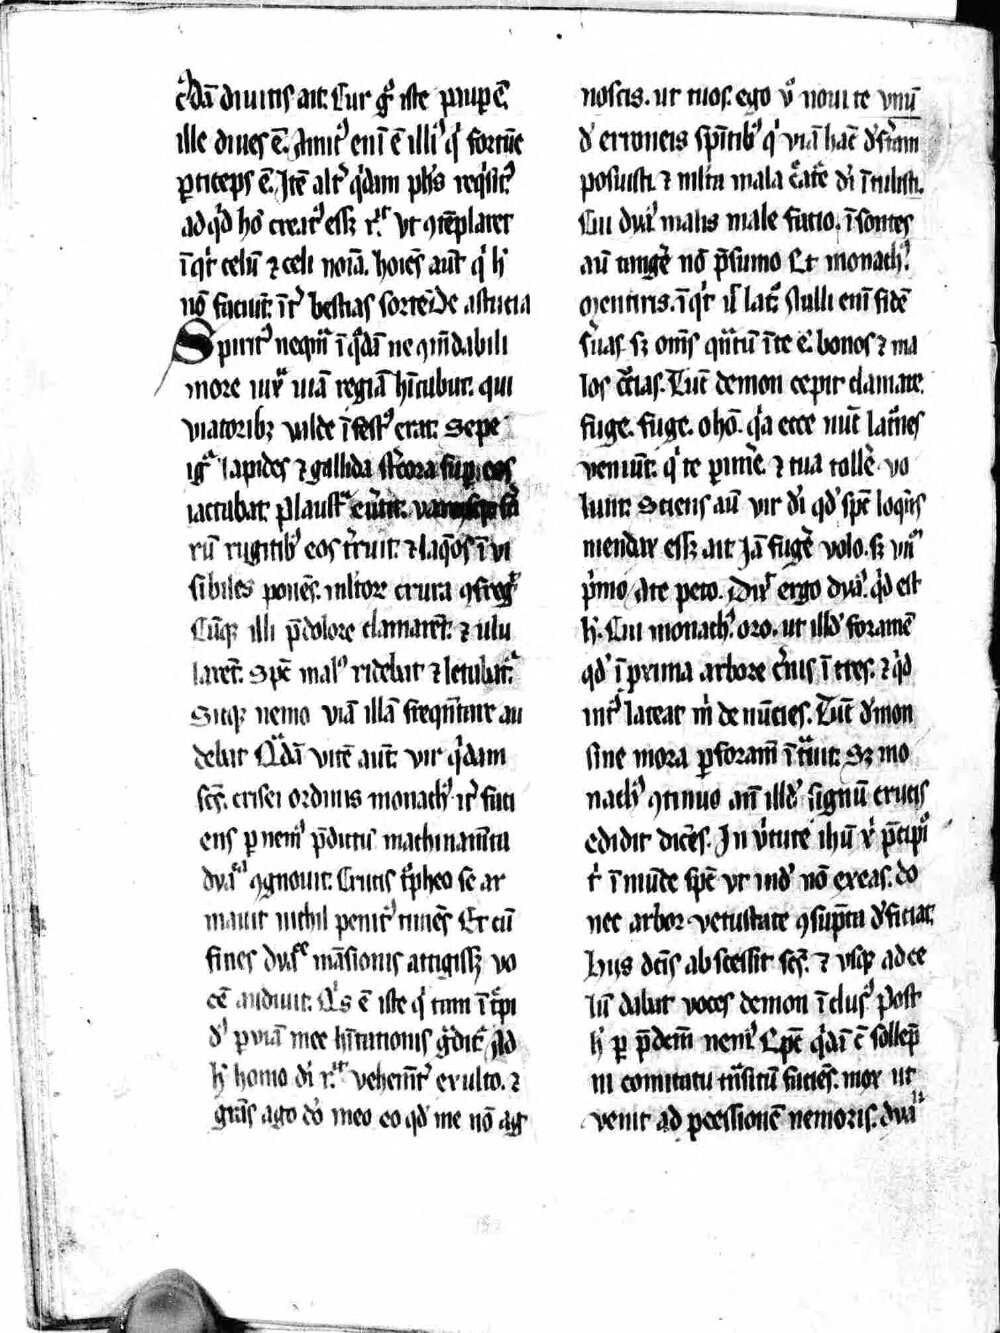 c̓dā diuitis ait. Cur gͦ iste paup ē.
ille diues ē. Amicꝰ enī ē illiꝰ q̓ fortūe
ꝑticeps ē. Itē alt̓ q̓dam ph̄s req̓sitꝰ
ad q̓d hō creatꝰ esset r̄. Vt ꝯtēplaret̓
īq̓t celū ⁊ celi noīa. hoīes aūt q̓ h̓
nō faciūt. īt̓ bestias sortē De astucia
Spiritꝰ neq̄m ī q̓dā ne ꝯm̄dabili
more iux̄ uiā regiā hītabat. qui
viatoribꝫ valde īfestꝰ erat. Sepe
ig̓ lapides ⁊ gallida st̄cora sup̄ eos
iactabat. plaust̓
rū rugitibꝰ eos t̄ruit. ⁊ laq̄os īui
sibiles ponēs. mltoꝝ crura ꝯfreg̓
Cūqꝫ illi p̄ dolore clamarēt. ⁊ ulu
larēt. Spc̄ malꝰ ridebat ⁊ letabat̓.
Sicqꝫ nemo viā illā freq̄ntare au
debat Q̓dā vice aūt. vir q̓dam
sc̄s. crisei ordinis monachꝰ it̓ faci
ens ꝑ nemꝰ p̄dictū machinam̄ta
dyaᵇ ꝯgnouit. Crucis t̓pheo se ar
mauit nichil penitꝰ timēs Et cū
fines dyaᵇ māsionis attigisset vo
cē audiuit. Q̓s ē iste q̓ tam ītpi
dꝰ ꝑ viā mee hītationis g̓dit̓. Ad
h̓ homo di r̄. vehem̄t̓ exulto. ⁊
grās ago dō meo eo qd̓ me nō ag
noscis. ut tuos. ego vͦ noui te vnū
d̓ erroneis sp̄itibꝰ q̓ viā hāc d̓fr̄am
posuisti. ⁊ mlta mala c̓atr̄e di ītulisti.
Cui dyaᵇ malis male facio. īsontes
aū tangē nō p̄sumo Et monachꝰ.
Mentiris. īq̓t ul̓ latͦ. stulli enī fidē
s̓uas. sꝫ om̄s q̄ntū īte ē. bonos ⁊ ma
los c̓cias. Tūc demon cepit clamare.
fuge. fuge. o hō. q̓a ecce nūc latͦnes
veniūt. q̓ te ꝑimē. ⁊ tua tollē. vo
lunt. Sciens aū vir di qd̓ spc̄ loq̄ns
mendax esset ait Iā fugē volo. sꝫ vnū
p̓mo a te peto. Dixͭ ergo dyaᵇ. q̓d est
h̓. Cui monachꝰ. oro. ut illd̓ foramē
qd̓ ī prima arbore c̓nis ītres. ⁊ q̓d
intꝰ lateat m̓ denūcies. Tūc d̓mon
sine mora ꝑ foram̄ īt̓uit. Sꝫ mo
nachꝰ ꝯtinuo an̄ illd̓ signū crucis
edidit dicēs. In v̓tute ihū x̓ p̄cipio
t̓ īmūde spc̄ vt ind̓ nō exeas. do
nec arbor vetustate ꝯsūpta d̓ficiat.
Hijs dc̄is abscessit sc̄s. ⁊ vsqꝫ ad ce
lū dabat voces demon īclusꝰ Post
h̓ ꝑ p̄dc̄m nemꝰ Epc̄ q̓dā ē̄ sollep̄
ni comitatu tn̄situ faciēs. mox ut
venit ad ꝓcessionē nemoris. dyaᵇ